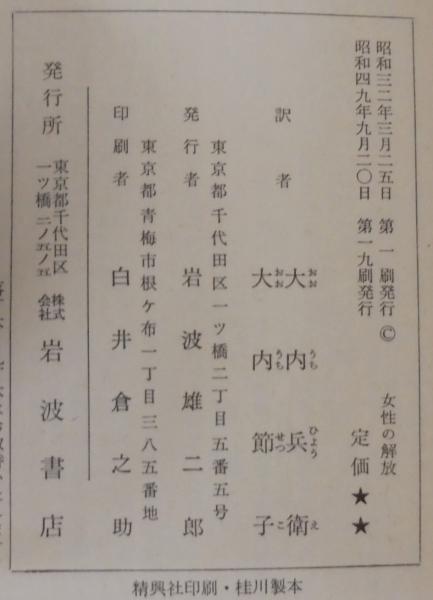 昭和三二年三月二五日　第一刷発行©
昭和四九年九月二〇日　第一九刷発行
女性の解放
定価★★
訳者　大内兵衛
おおうちひょうえ
大内節子
おおうちせつこ
東京都千代田区一ツ橋二丁目五番五号
発行者　岩波雄二郎
東京都青梅市根ケ布一丁目三八五番地
印刷者　白井倉之助
発行所
東京都千代田区
一ツ橋二ノ五ノ五
株式会社　岩波書店
精興社印刷・桂川製本